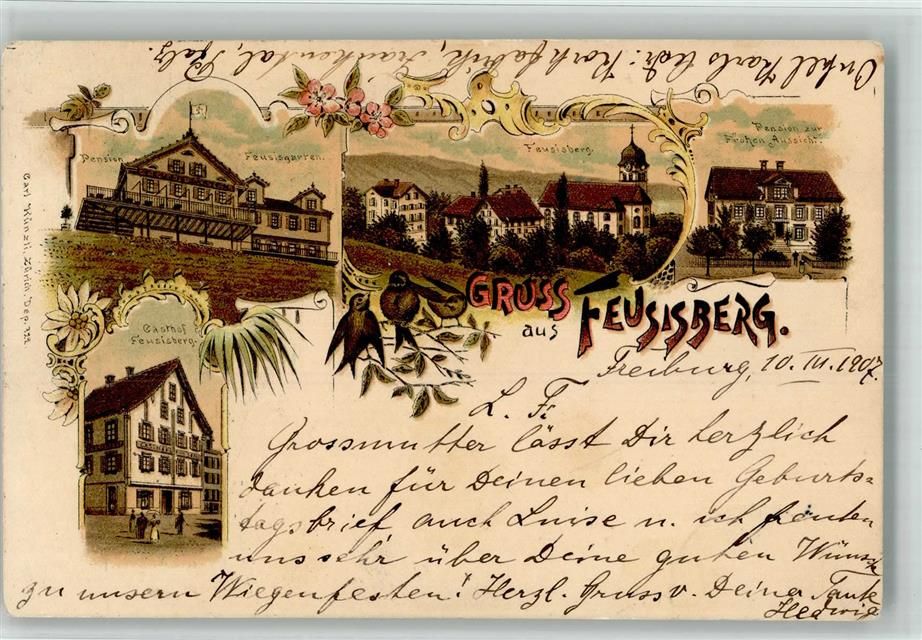 Onkel Karls Adr: Korkfabrik, Frankental, Pfalz.
Pension Feusisgarten.
Feusisberg.
Pension zur
Frohen Aussicht.
Carl Künzli, Zürich. Dep. 322
Gasthof
Feusisberg.
GRUSS
aus FEUSISBERG.
Freiburg, 10. III. 1907.
L. F.
Grossmutter lässt Dir herzlich
danken für Deinen lieben Geburts-
tagsbrief auch Luise u. ich freuten
uns sehr über Deine guten Wünsche
zu unsern Wiegenfesten! Herzl. Gruss v. Deiner Tante
Hedwig